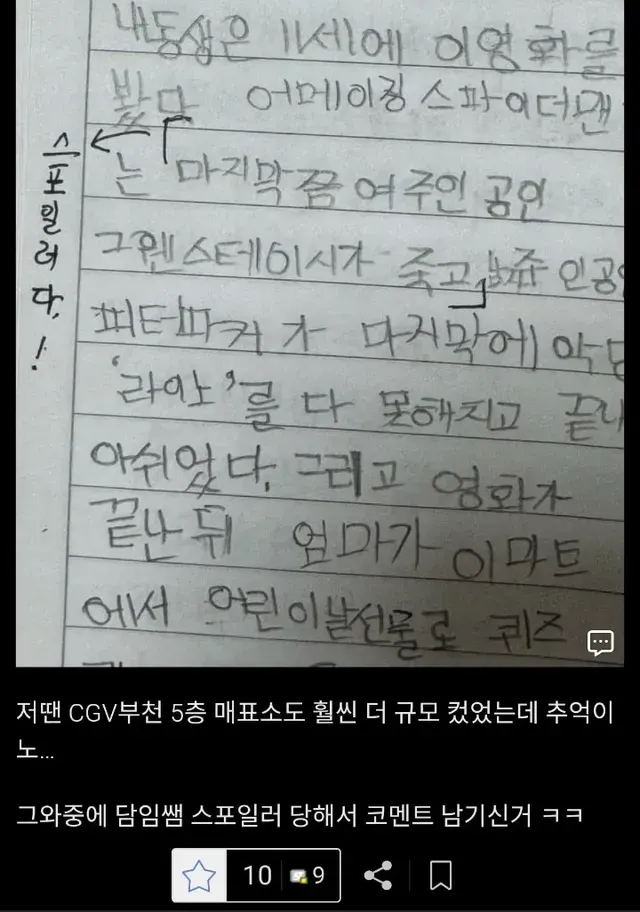 내동생은 11세에 이영화를
봤다 어메이징 스파이더맨
는 마지막쯤 여주인 공인
그웬스테이시가 죽고 남쥬 인공
피터파커가 마지막에 악당
‘라이노’를 다 못해치고 끝나
아쉬웠다. 그리고 영화가
끝난뒤 엄마가 이마트
에서 어린이날선물로 퀴즈
스포일러다.!
저땐 CGV부천 5층 매표소도 훨씬 더 규모 컸었는데 추억이
노...
그와중에 담임쌤 스포일러 당해서 코멘트 남기신거 ㅋㅋ
10 9